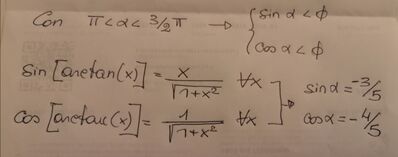 Con π<α<3/2π → { sin α < ϕ
cos α < ϕ
sin [arctan(x)] = x/√1+x² ∀x
cos [arctan(x)] = 1/√1+x² ∀x
→ sin α = -3/5
cos α = -4/5